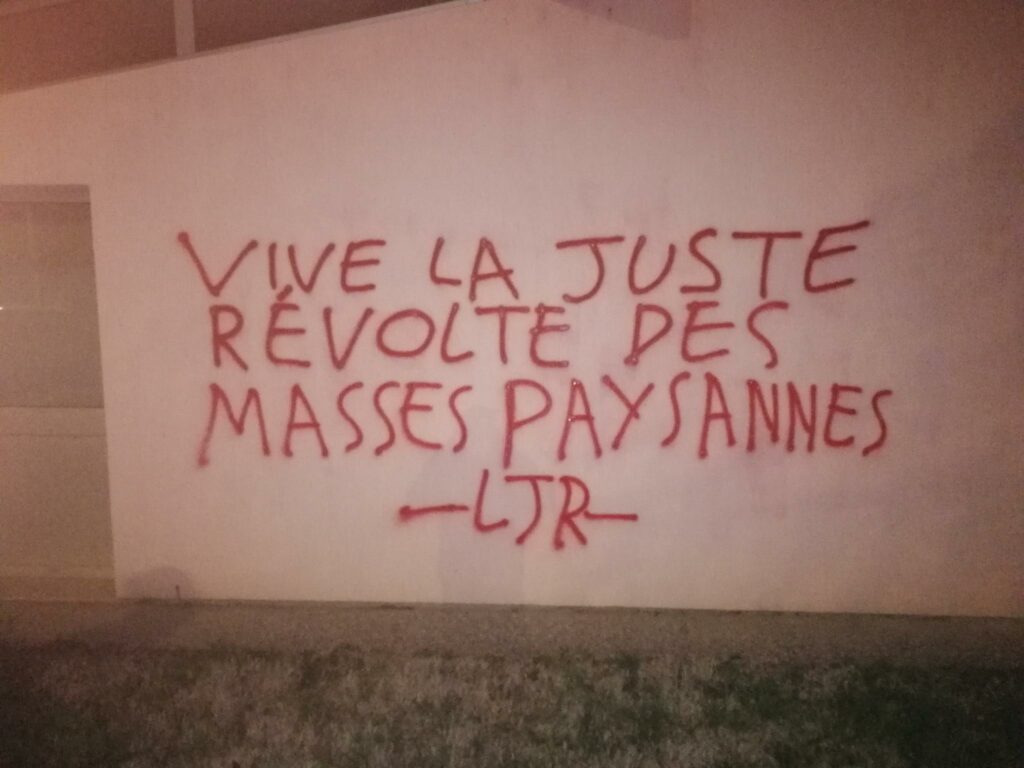 VIVE LA JUSTE
RÉVOLTE DES
MASSES PAYSANNES
-LJR-